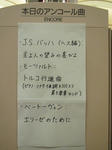 本日のアンコール曲
ENCORE
J.S.バッハ（ヘス編）
主よ人の望みの喜びよ
モーツァルト
トルコ行進曲
（ピアノソナタ
ベートーヴェン
エリーゼのために